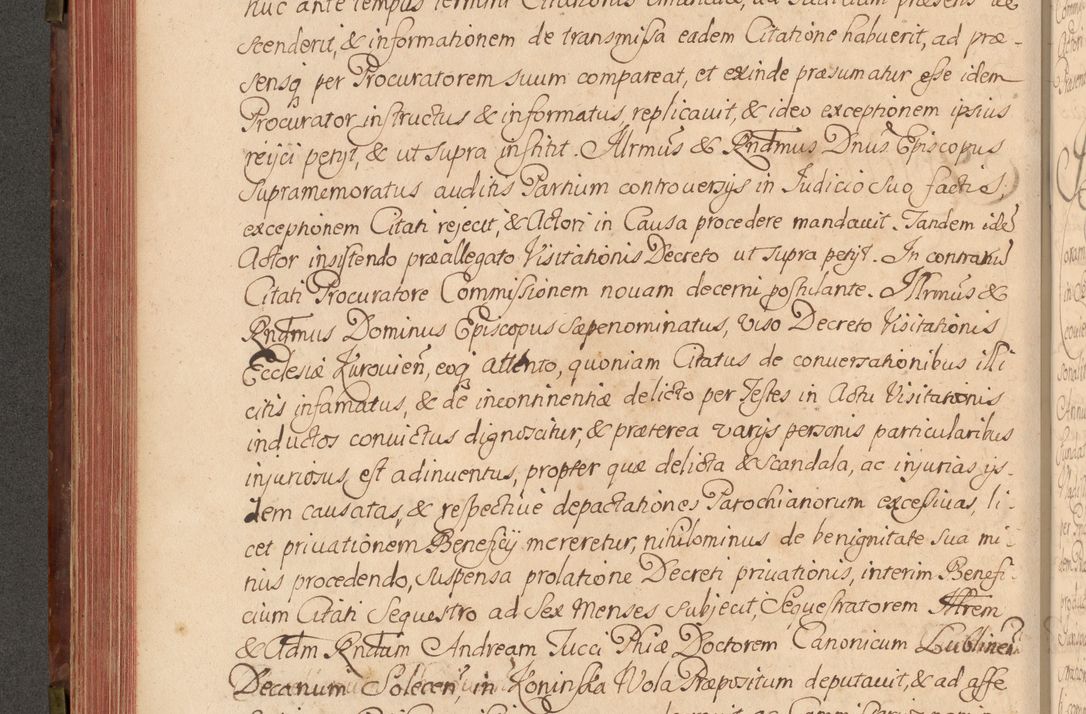 huc ante tempus termini Citationis
scenderit, & informationem de transmissa eadem Citatione habuerit, ad præ-
sensq per Procuratorem suum compareat, et exinde præsumatur esse idem
Procurator instructus & informatus, replicavit, & ideo exceptionem ipsius
reijci petijt, & ut supra institit. Illrmus & Rndmus Dnus Episcopus
supramemoratus auditis Partium controversijs in Judicio suo factis,
exceptionem Citati rejecit, & Actori in Causa procedere mandavit. Tandem idē
Actor insistendo præallegato Visitationis Decreto ut supra petijt. In contrariū
Citati Procuratore Commissionem novam decerni postulante. Illrmus &
Rndmus Dominus Episcopus sæpenominatus, viso Decreto Visitationis
Ecclesiæ Kurovień, eoq attento, quoniam Citatus de conversationibus illi
citis infamatus, & de incontinentiæ delicto per Testes in Actu Visitationis
inductos convictus dignoscitur, & præterea varijs personis particularibus
injuriosus est adinventus, propter quæ delicta & scandala, ac injurias ijs-
dem causatas, & respective depactationes Parochianorum excessivas, li-
cet privationem Beneficij mereretur, nihilominus de benignitate sua mi-
tius procedendo, suspensa prolatione Decreti privationis, interim Benefi-
cium Citati Sequestro ad Sex Menses subjecit, Sequestratorem Illrem
& Adm Rndum Andream Tucci Phiæ Doctorem Canonicum Lublineñ
Decanum Soleceñ, in Koninska Wola Præpositum deputavit, & ad affe